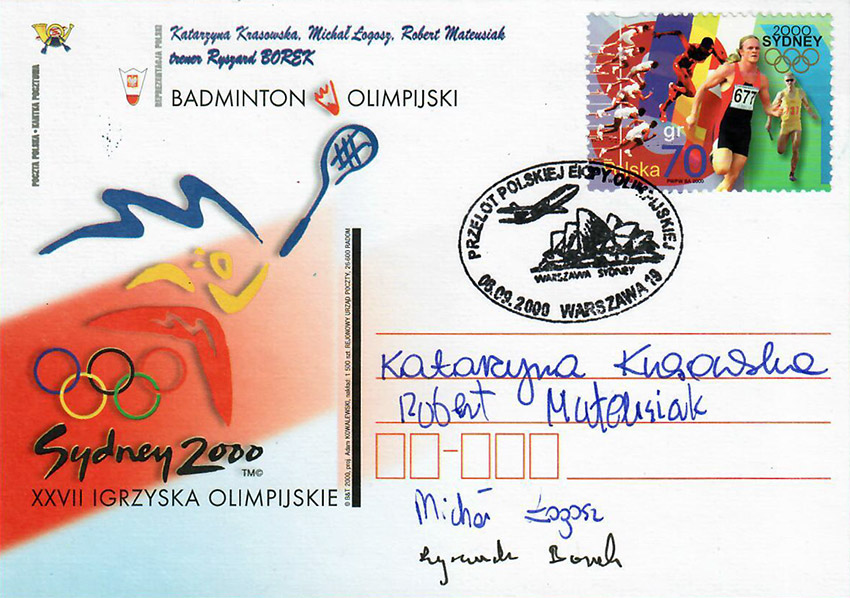 Katarzyna Krasowska, Michał Łogosz, Robert Mateusiak
trener Ryszard BOREK
REPREZENTACJA POLSKI
BADMINTON OLIMPIJSKI
POCZTA POLSKA - KARTKA POCZTOWA
2000
SYDNEY
677
gr 70
Polska
PWPW SA 2000
PRZELOT POLSKIEJ EKIPY OLIMPIJSKIEJ
WARSZAWA SYDNEY
08.09.2000 WARSZAWA 19
Sydney 2000
TM©
XXVII IGRZYSKA OLIMPIJSKIE
© B&T 2000, proj. Adam KOWALEWSKI, nakład: 1 500 szt. REJONOWY URZĄD POCZTY, 26-600 RADOM
Katarzyna Krasowska
Robert Mateusiak
Michał Łogosz
Ryszard Borek